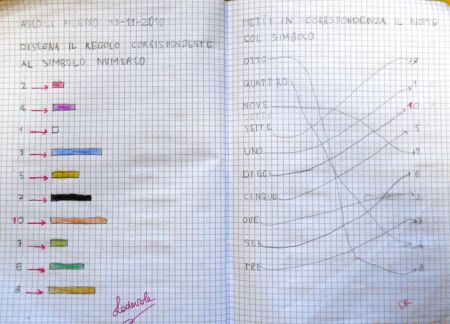 ASCOLI PICENO 15-11-2010
DISEGNA IL REGOLO CORRISPONDENTE
AL SIMBOLO NUMERICO
2
4
1
9
5
7
10
3
6
8
Lodevole
METTI IN CORRISPONDENZA IL NOME
COL SIMBOLO
OTTO
QUATTRO
NOVE
SETTE
UNO
DIECI
CINQUE
DUE
SEI
TRE
7
1
10
5
9
6
2
3
4
8
OK